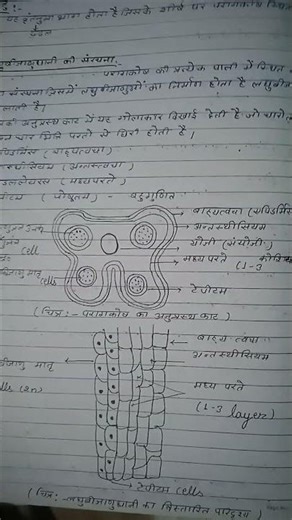 पर हंतुना भाग होता है जिसके शीर्ष पर परागकोष स्थित
लघुबीजाणुधानी की संरचना:-
परागकोष की प्रत्येक पाली में स्थित
संरचना जिसमें लघुबीजाणुओं का निर्माण होता है लघुबीज
कहलाती है।
की अनुप्रस्थ काट में यह गोलाकार दिखाई देती है जो चारों
चार भित्ति परतों से घिरी होती है।
(बाह्यत्वचा)
(अन्तस्त्वचा)
(मध्यपरतें)
(पोषूतम) - बहुगुणित
बाह्यत्वचा (एपिडर्मिस)
अन्तस्थीसियम
योजी (संयोजी)
मध्य परतें
(1-3
Cell
cells
टेपीटम
(चित्र:- परागकोष का अनुप्रस्थ काट)
बाह्य त्वचा
अन्तस्थीसियम
बीजाणु मातृ
cells (2n)
मध्य परतें
(1-3 layer)
टेपीटम cells
(चित्र:- लघुबीजाणुधानी का विस्तारित परिदृश्य)